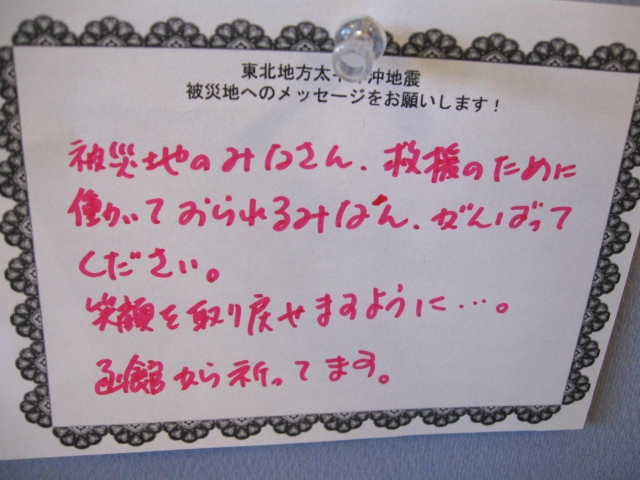 東北地方太平洋沖地震
被災地へのメッセージをお願いします！
被災地のみなさん、救援のために
働いておられるみなさん、がんばって
ください。
笑顔を取り戻せますように…。
函館から祈ってます。